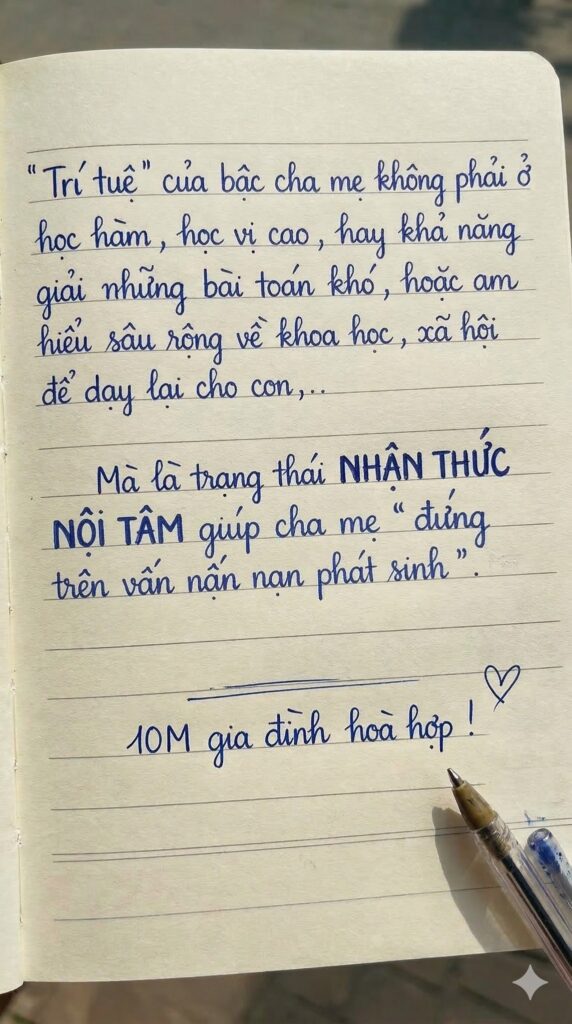 "Trí tuệ" của bậc cha mẹ không phải ở
học hàm, học vị cao, hay khả năng
giải những bài toán khó, hoặc am
hiểu sâu rộng về khoa học, xã hội
để dạy lại cho con,..
Mà là trạng thái NHẬN THỨC
NỘI TÂM giúp cha mẹ "đứng
trên vấn nận nạn phát sinh".
10M gia đình hoà hợp!